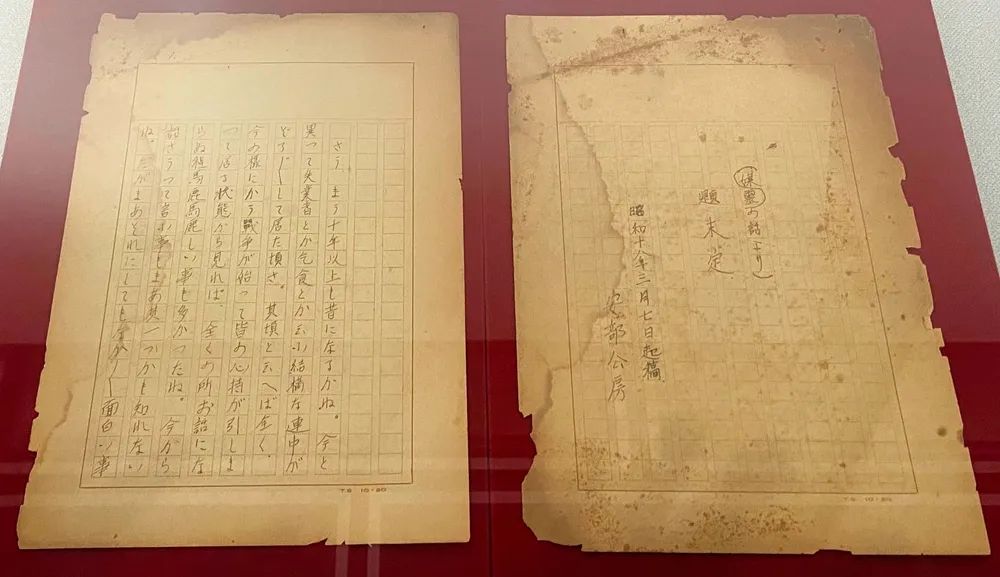 (媒靈の話より)
題 未定
昭和十八年三月七日起稿
安部公房
さう、もう十年以上も昔になるかね。今と
異つて失業者とか乞食とか云ふ結構な連中が
ぞろ〱して居た頃さ。其頃と云へば全く、
今の様にかう戰争が始つて皆の心持が引しま
つて居る状態から見れば、全くの所お話にな
らぬ程馬鹿馬鹿しい事も多かつたね。今から
話さうつて言ふ事もまあ其一つかも知れない
ね。だがまあそれにしてもなか〱面白い事
T.S 10・20
T.S 10・20